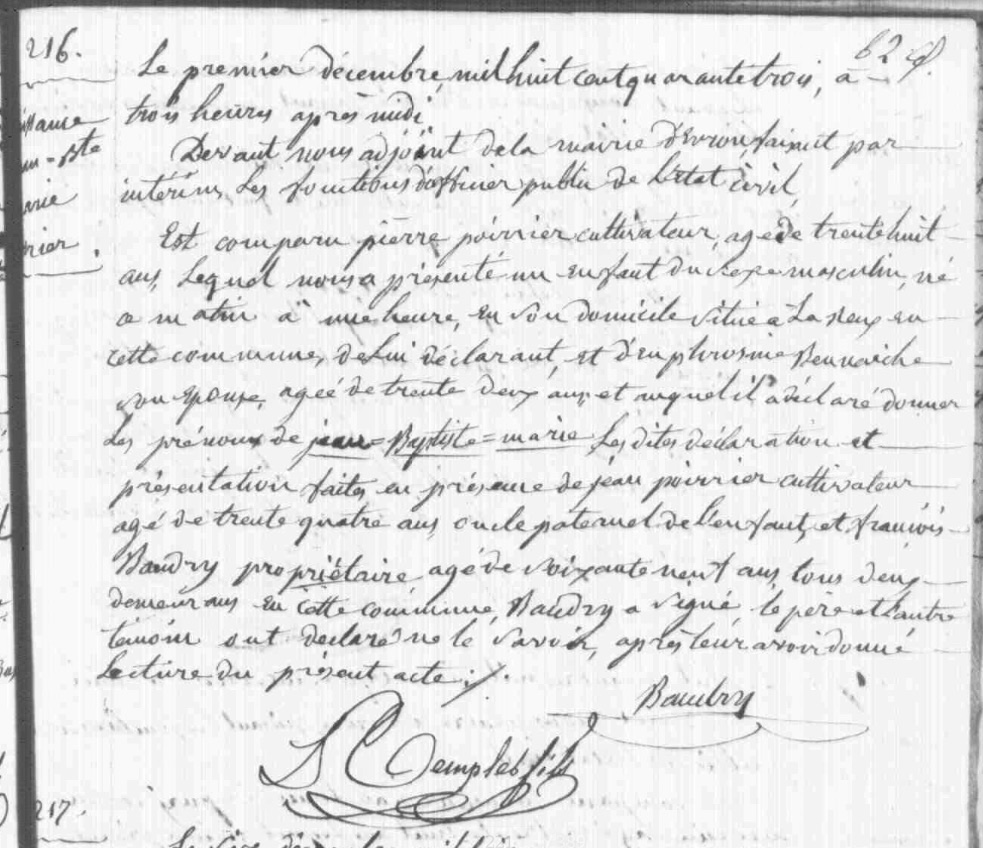 216.
62 d.
Le premier décembre, mil huit cent quarante trois, à
trois heures après midi,
Devant nous adjoint de la mairie d'Evron, faisant par
intérim, les fonctions d'officier public de l'état civil,
Est comparu pierre poirrier cultivateur, agé de trente huit
ans, Lequel nous a présenté un enfant du sexe masculin, né
ce matin à une heure, en son domicile situé à La
cette commune, de Lui déclarant, et d'Euphrosine
son epouse, agée de trente deux ans, et auquel il a déclaré donner
Les prénoms de jean=Baptiste=marie Les dites déclaration et
présentation faites en présence de jean poirrier cultivateur
agé de trente quatre ans, oncle paternel de l'enfant, et françois
Baudry propriétaire agé de soixante neuf ans, tous deux
demeurans en cette commune, Baudry a signé le père et l'autre
témoin ont déclaré ne le savoir, après leur avoir donné
Lecture du présent acte ;/.
Baudry
ssance
an=Bte
arie
rrier.
217.